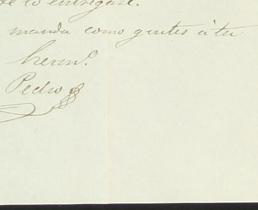 lo entregare.
manda como gustes á tu
herm.º
Pedro